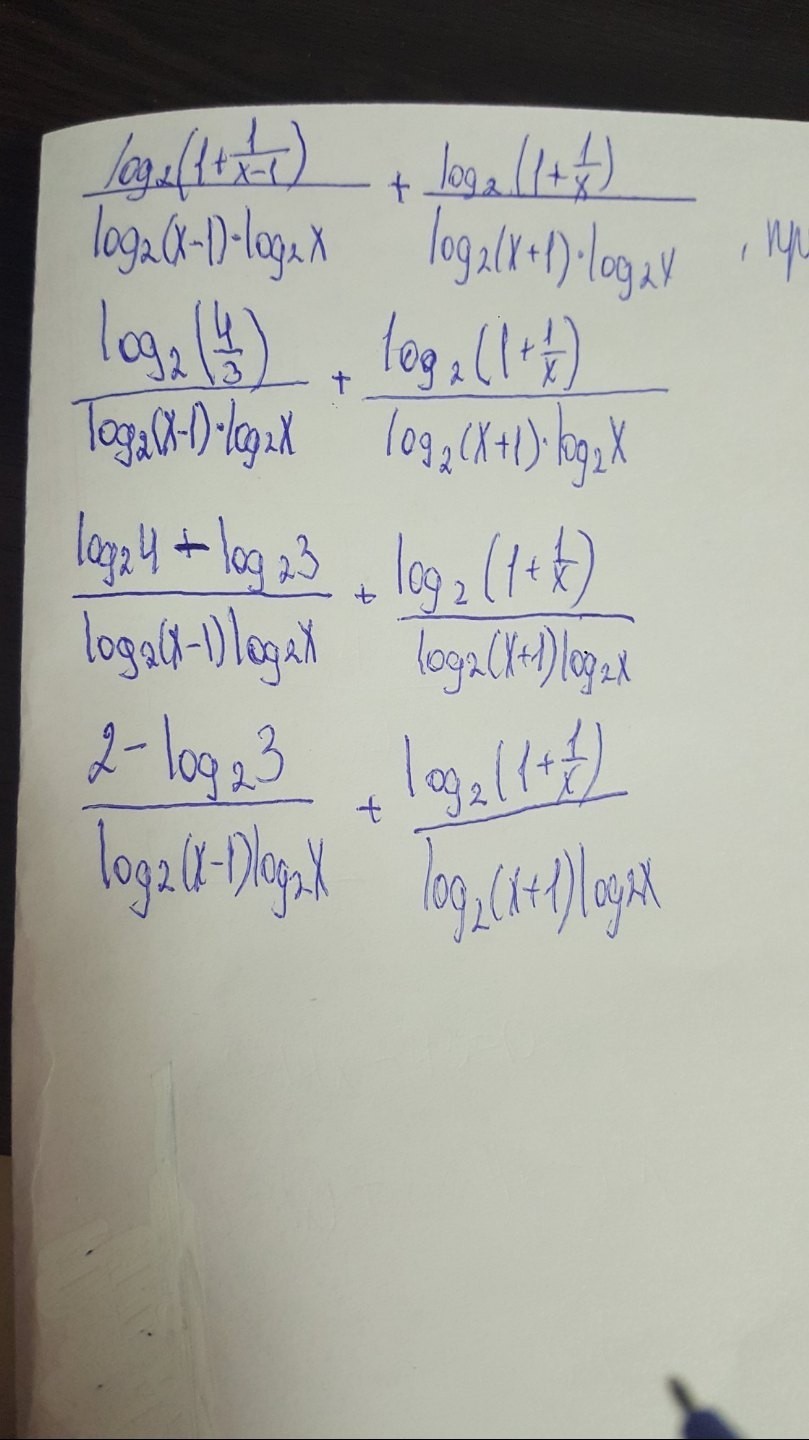 log₂(1+1/(x-1))/(log₂(x-1)·log₂x) + log₂(1+1/x)/(log₂(x+1)·log₂x) , пр
log₂(4/3)/(log₂(x-1)·log₂x) + log₂(1+1/x)/(log₂(x+1)·log₂x)
(log₂4 - log₂3)/(log₂(x-1)log₂x) + log₂(1+1/x)/(log₂(x+1)log₂x)
(2-log₂3)/(log₂(x-1)log₂x) + log₂(1+1/x)/(log₂(x+1)log₂x)